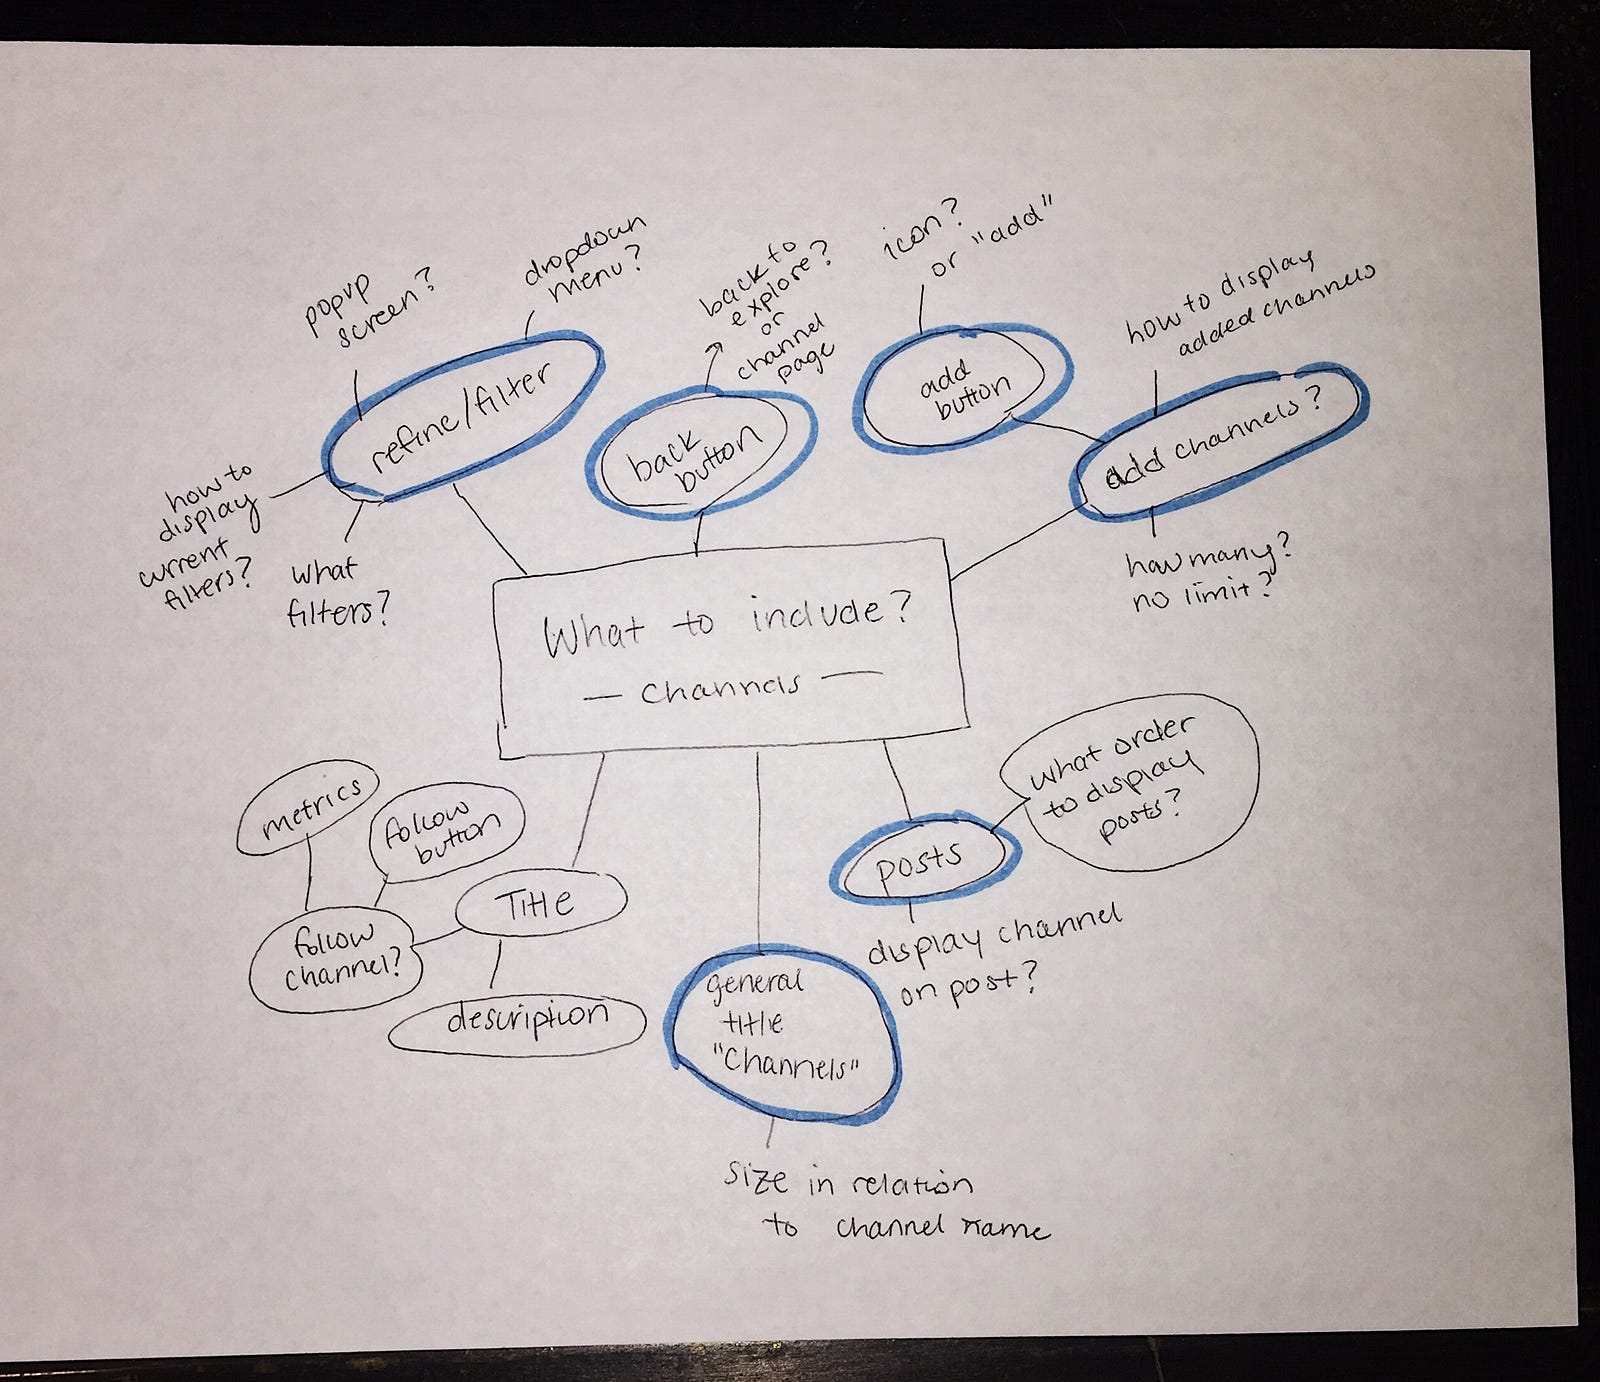 popup
screen?
dropdown
menu?
back to
explore?
or
channel
page
icon?
or "add"
how to display
added channels
refine/filter
back
button
add
button
add channels?
how to
display
current
filters?
what
filters?
how many?
no limit?
What to include?
— Channels —
metrics
follow
button
Title
follow
channel?
description
general
title
"Channels"
size in relation
to channel name
posts
what order
to display
posts?
display channel
on post?